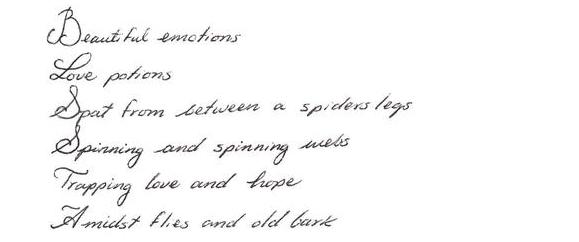 Beautiful emotions
Love potions
Spat from between a spiders legs
Spinning and spinning webs
Trapping love and hope
Amidst flies and old bark